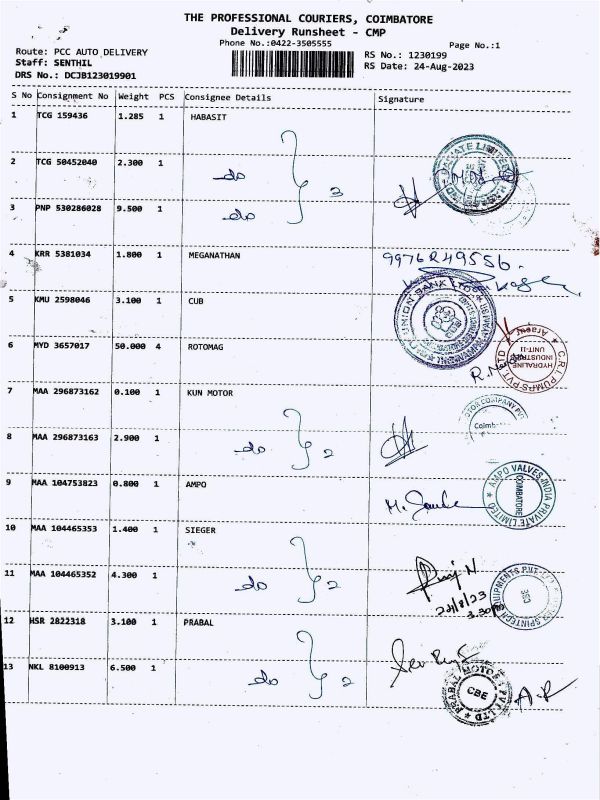 THE PROFESSIONAL COURIERS, COIMBATORE
Delivery Runsheet - CMP
Phone No.:0422-3505555
Page No.:1
Route: PCC AUTO DELIVERY
RS No.: 1230199
Staff: SENTHIL
RS Date: 24-Aug-2023
DRS No.: DCJB123019901
S No Consignment No Weight PCS Consignee Details Signature
1 TCG 159436 1.285 1 HABASIT
2 TCG 50452040 2.300 1 do
3
3 PNP 530286028 9.500 1 do
4 KRR 5381034 1.800 1 MEGANATHAN
5 KMU 2598046 3.100 1 CUB
UNION BANK
CUB
6 MYD 3657017 50.000 4 ROTOMAG
C.R.I. PUMPS PVT LTD
HYDRALINE
INDUSTRIE
UNIT-II
7 MAA 296873162 0.100 1 KUN MOTOR
MOTOR COMPANY PVT
Coimb
8 MAA 296873163 2.900 1 do 2
9 MAA 104753823 0.800 1 AMPO
AMPO VALVES INDIA PRIVATE LIMITED
COIMBATORE
10 MAA 104465353 1.400 1 SIEGER
11 MAA 104465352 4.300 1 do 2
24/8/23
3.30
12 HSR 2822318 3.100 1 PRABAL
13 NKL 8100913 6.500 1 do 2
PRABAL MOTORS PVT LTD
CBE